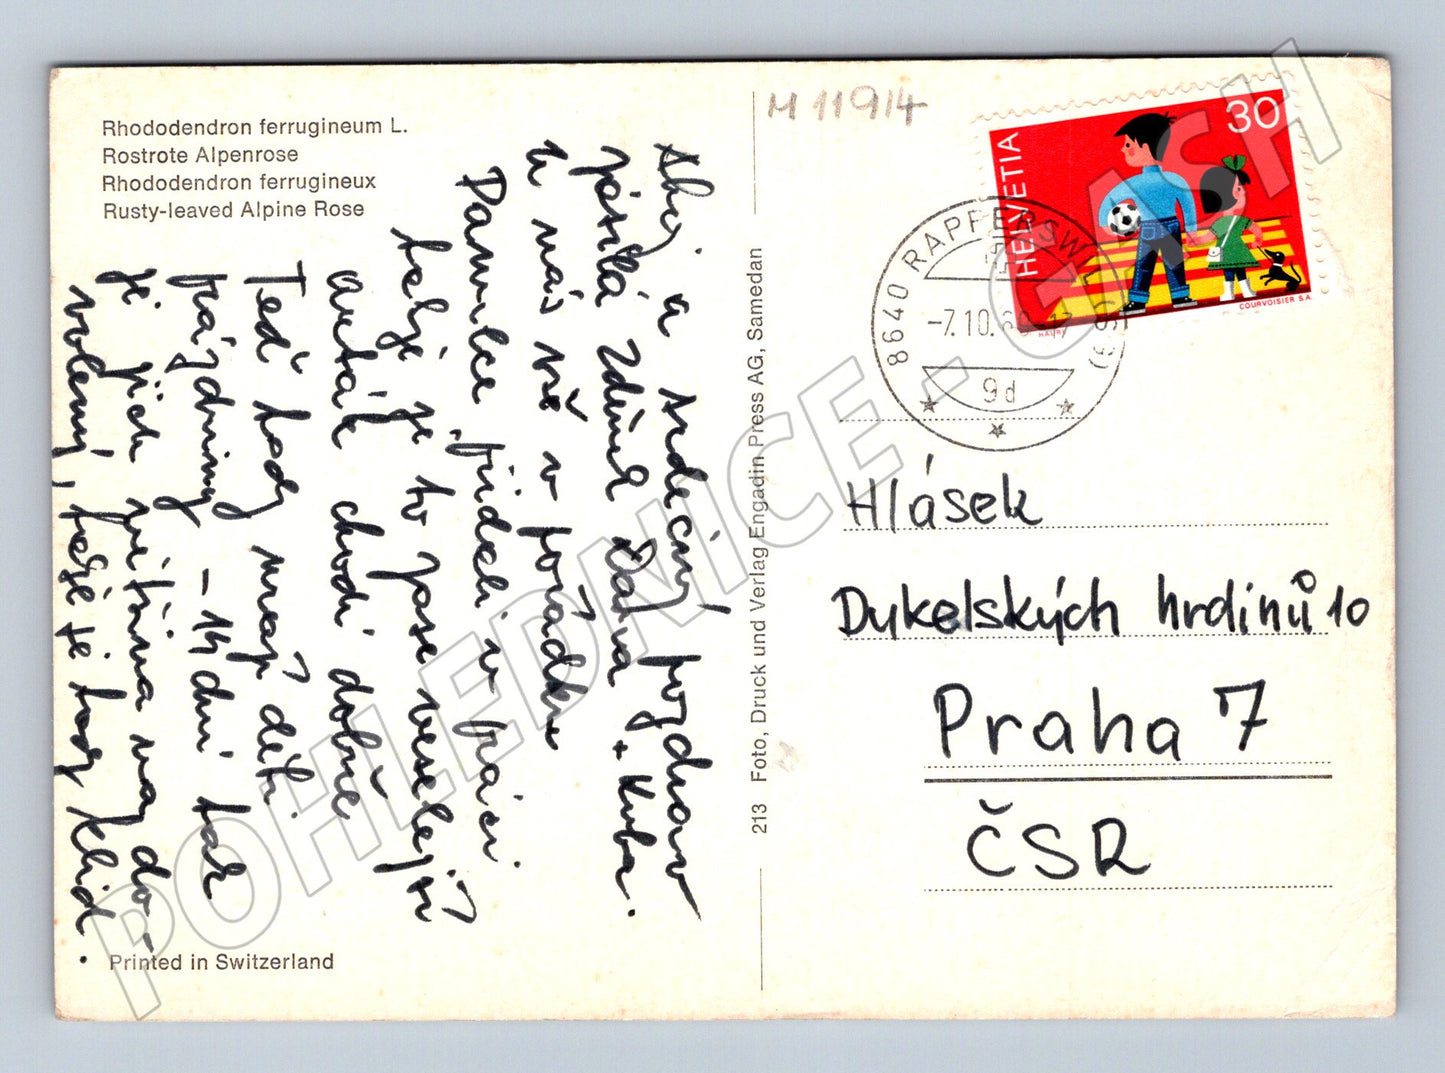 Rhododendron ferrugineum L.
Rostrote Alpenrose
Rhododendron ferrugineux
Rusty-leaved Alpine Rose
Ahoj a srdečný pozdrav
zásílá Zdena Láďa + Kuba.
u nás vše v pořádku
v práci.
je to zase veselejší
auťák chodí dobře
Teď tady mají děti
prázdniny – 14 dní tak
je jich většina na do-
volený, takže je tady klid.
Printed in Switzerland
213 Foto, Druck und Verlag Engadin Press AG, Samedan
M 11914
HELVETIA
30
COURVOISIER S.A.
8640 RAPPERSWIL (SG)
-7.10.69-17
9d
Hlásek
Dukelských hrdinů 10
Praha 7
ČSR
POHLEDNICE - GLASH